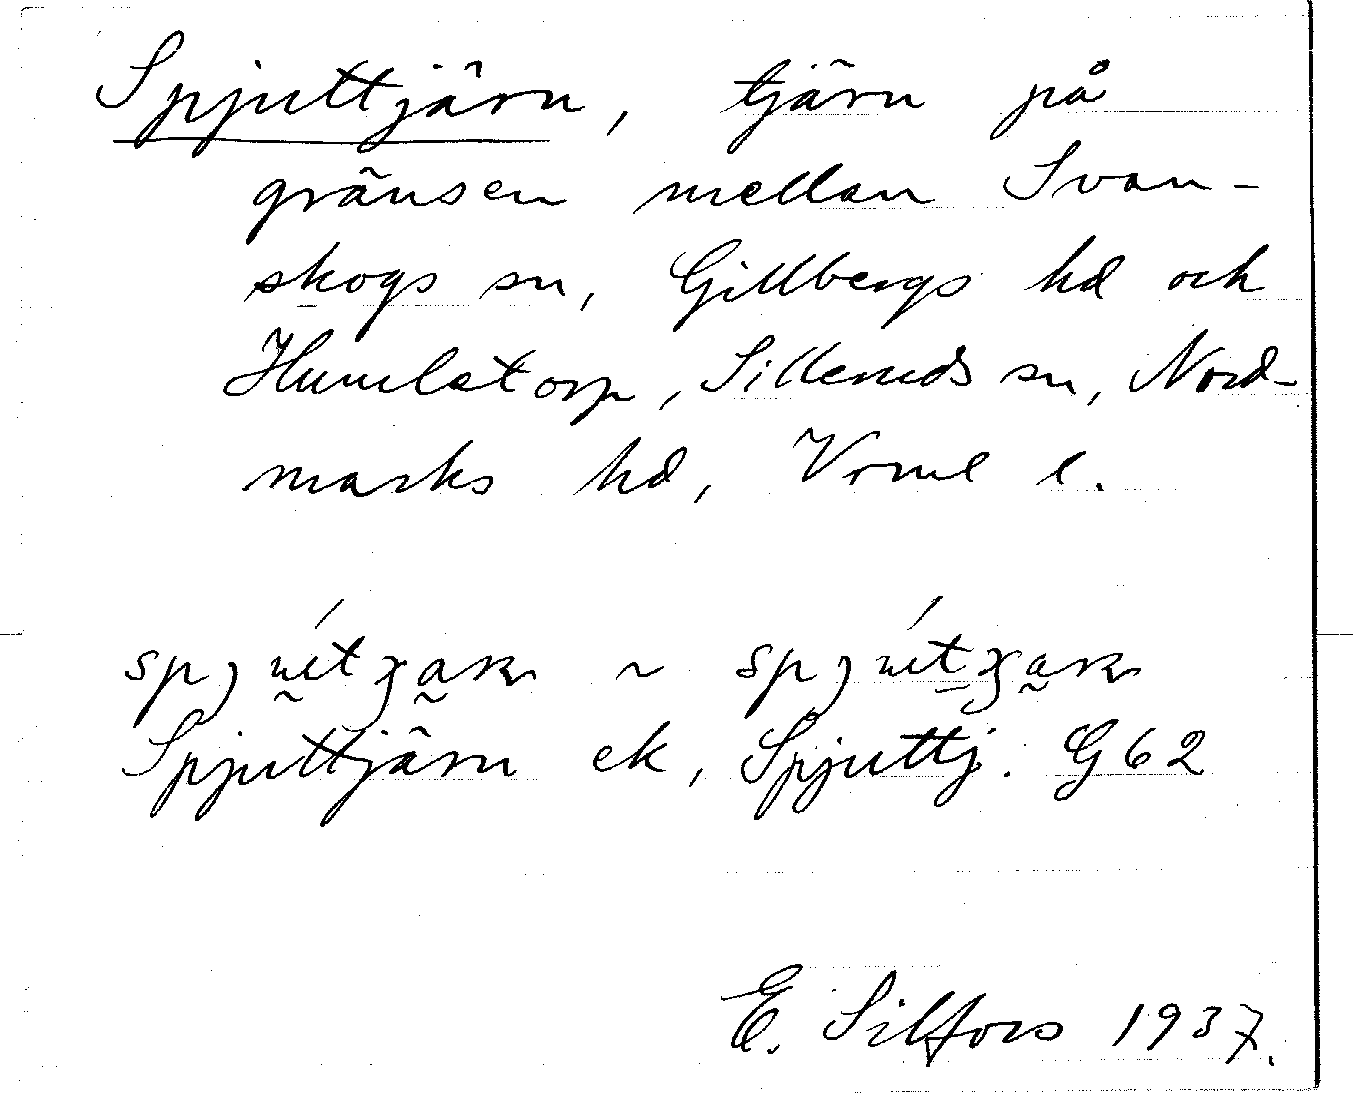 Spjuttjärn, tjärn på
gränsen mellan Svan-
skogs sn, Gillbergs hd och
Humletorp, Silleruds sn, Nord-
marks hd, Vrml l.
~
Spjuttjärn ek, Spjuttj. G62
E. Silfors 1937.